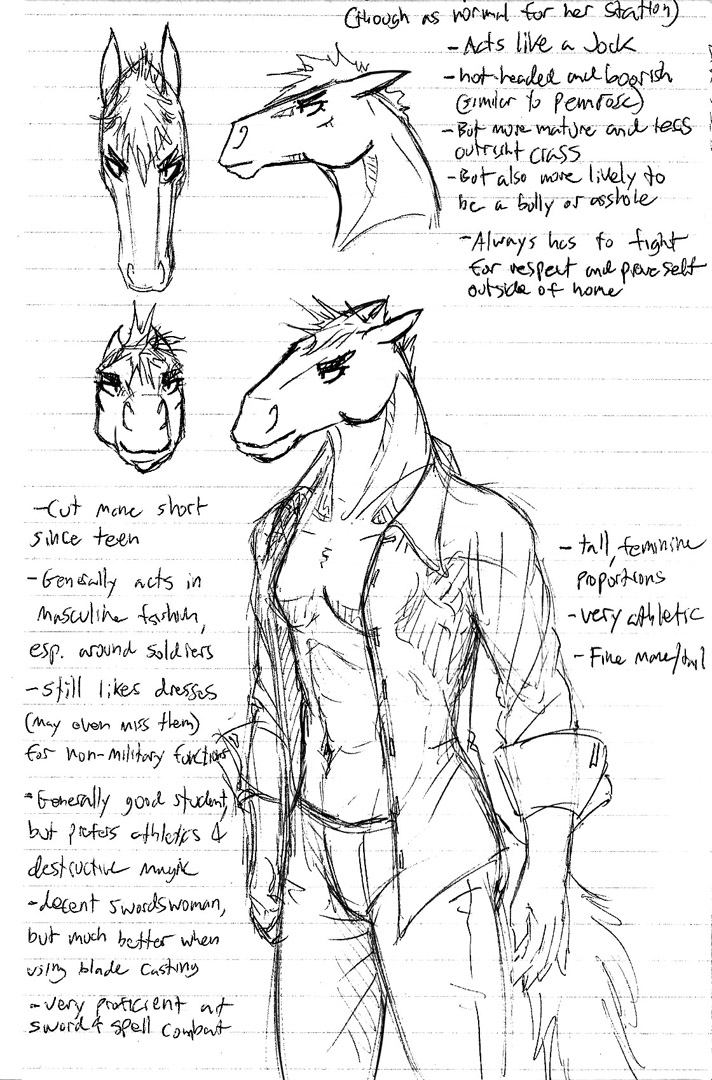 (though as normal for her station)
- Acts like a Jock
- hot-headed and boorish
(similar to Pemrose)
- But more mature and less
outright crass
- But also more lively to
be a bully or asshole
- Always has to fight
for respect and prove self
outside of home
- Cut mane short
since teen
- Generally acts in
masculine fashion,
esp. around soldiers
- still likes dresses
(may even miss them)
for non-military functions
- Generally good student,
but prefers athletics &
destructive magic
- decent swordswoman,
but much better when
using blade casting
- very proficient at
sword & spell combat
- tall, feminine
proportions
- very athletic
- Fine mane/tail